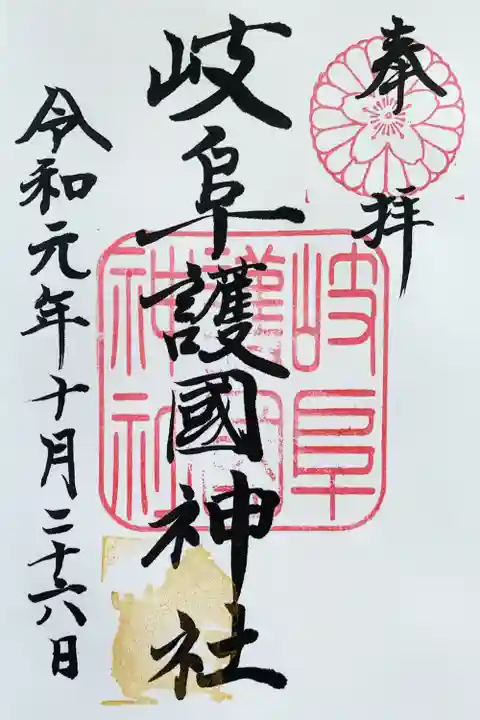 奉拝
岐阜護國神社
岐阜
護國
神社
令和元年十月二十六日